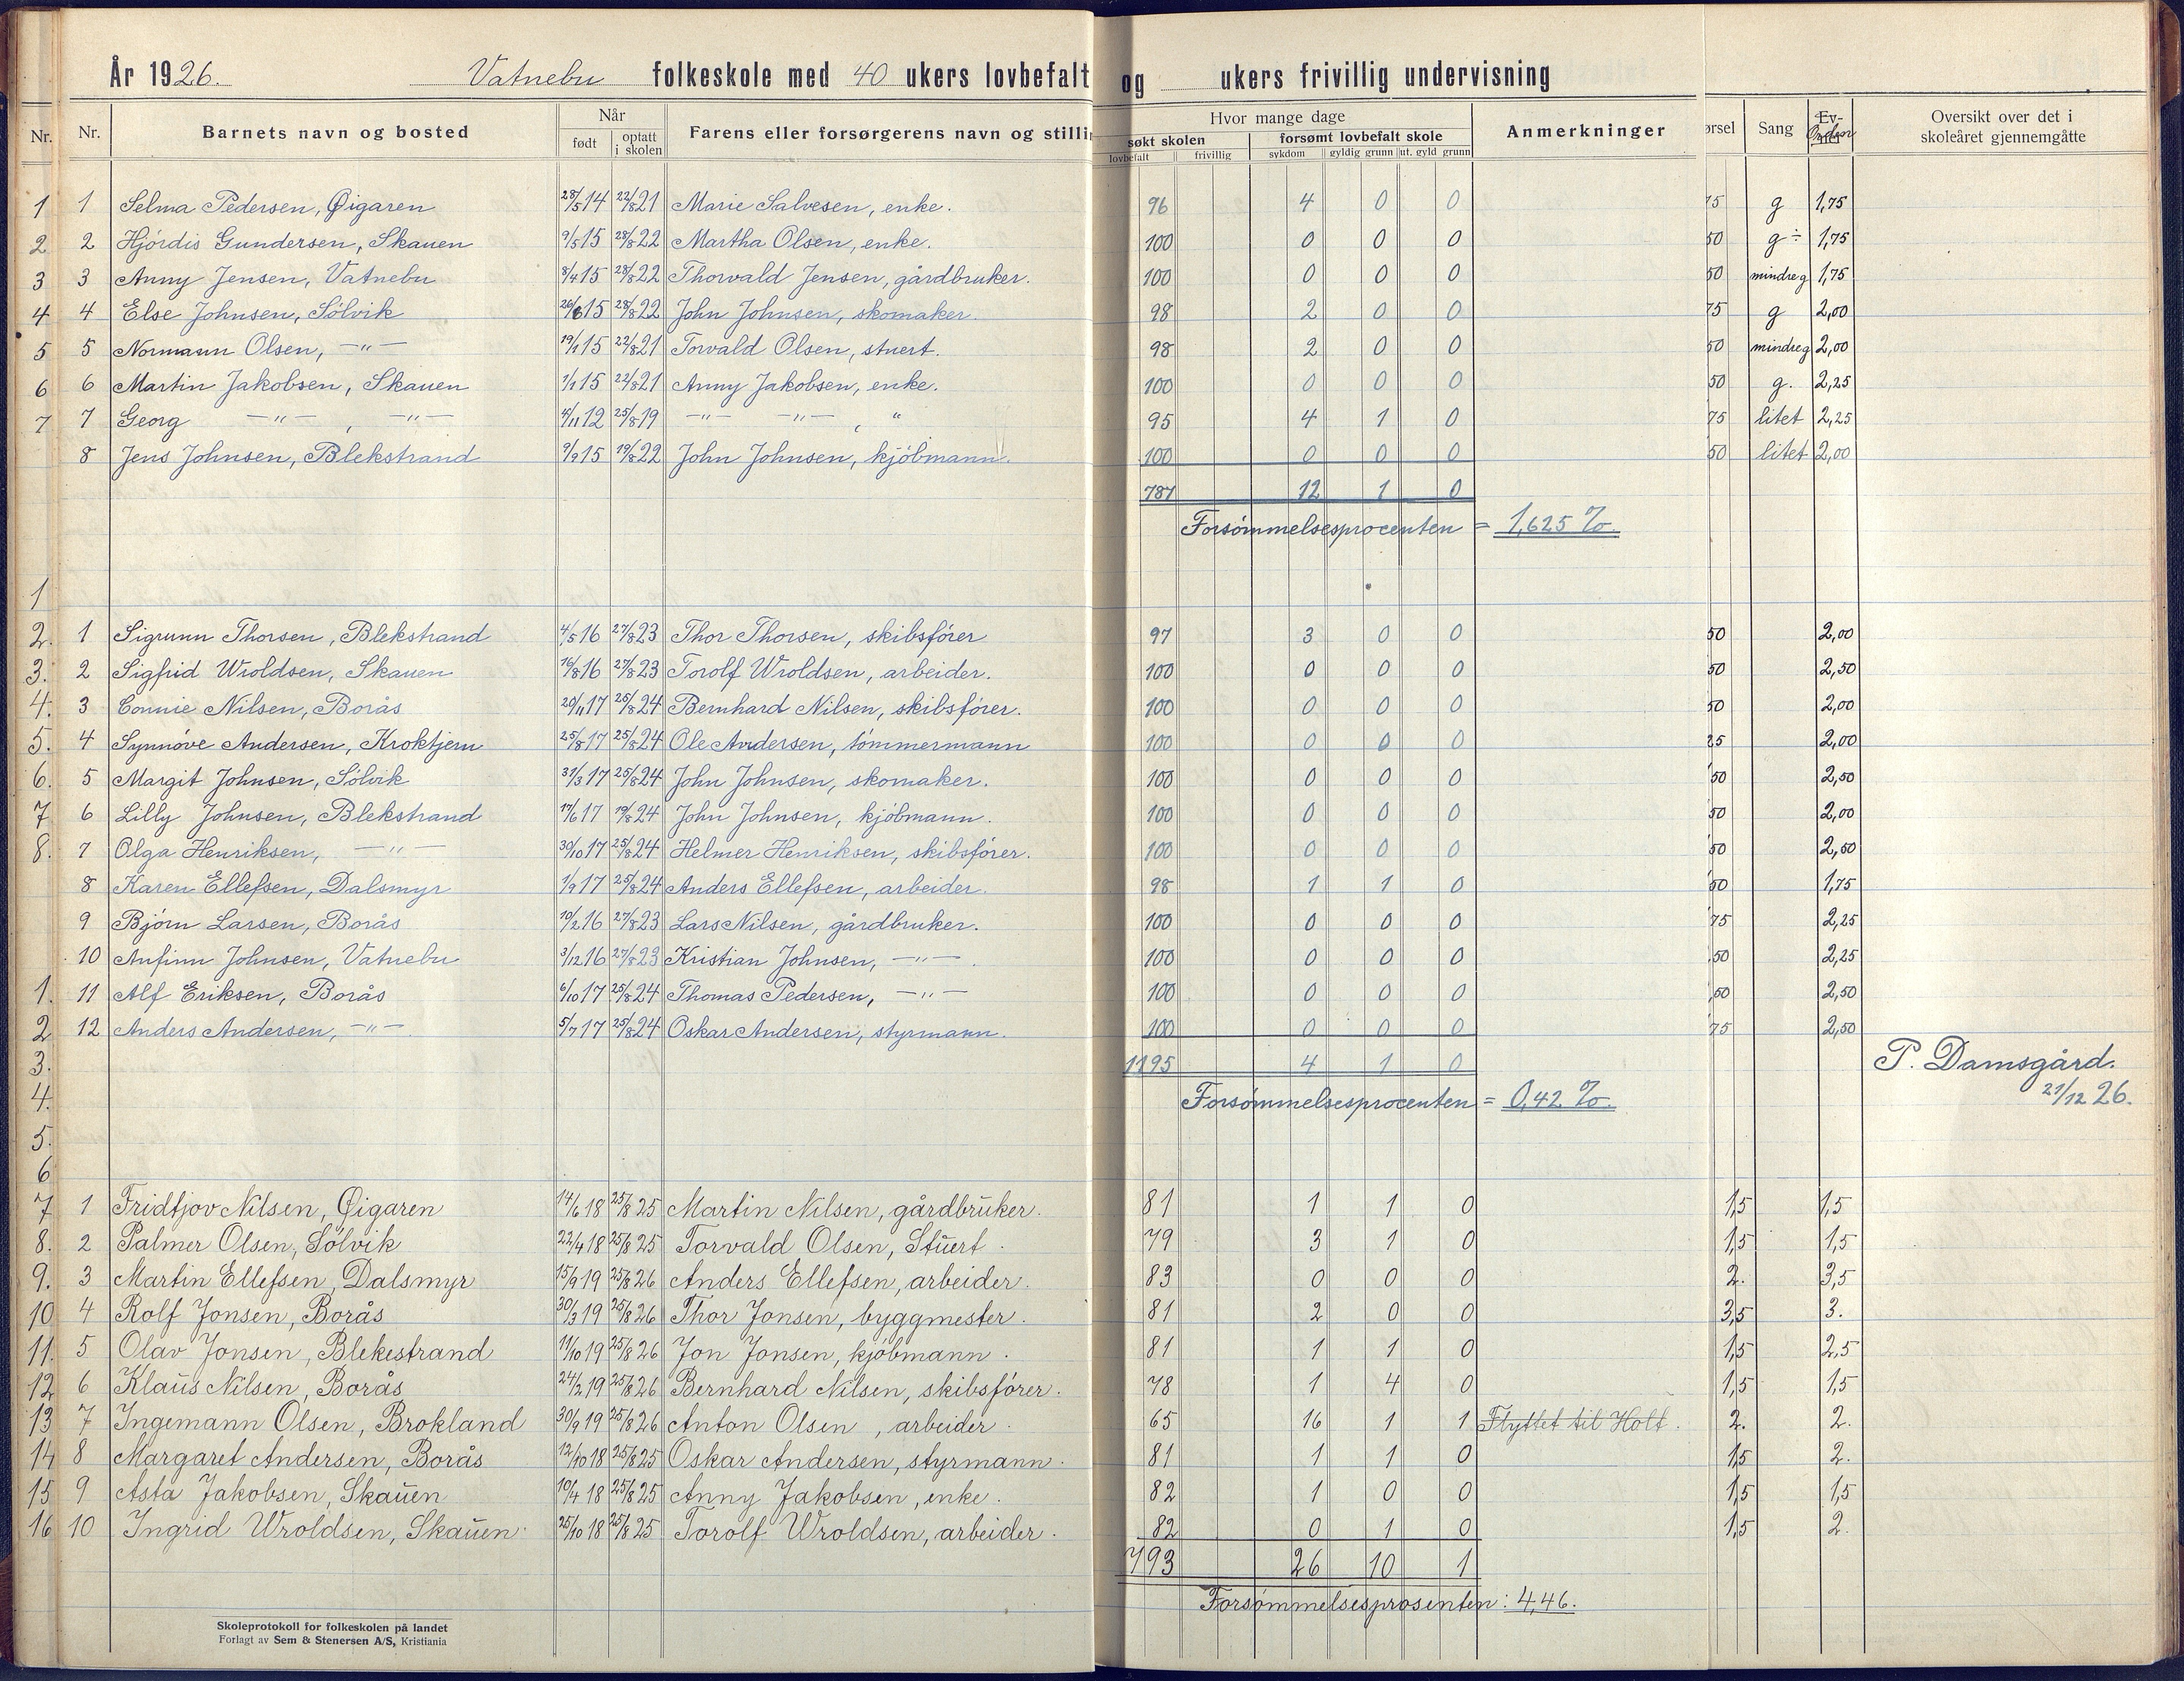 År 1926. Vatnebu folkeskole med 40 ukers lovbefalt og ukers frivillig undervisning
Nr. Nr. Barnets navn og bosted Når født optatt i skolen Farens eller forsørgerens navn og stillin Hvor mange dage søkt skolen lovbefalt frivillig forsømt lovbefalt skole sykdom gyldig grunn ut. gyld grunn Anmerkninger ørsel Sang Ev- Orden Oversikt over det i skoleåret gjennemgåtte
1 1 Selma Pedersen, Øigaren 28/5 14 22/8 21 Marie Salvesen, enke. 96 4 0 0 75 g 1,75
2 2 Hjördis Gundersen, Skauen 9/5 15 28/8 22 Martha Olsen, enke. 100 0 0 0 50 g÷ 1,75
3 3 Anny Jensen, Vatnebu 8/4 15 28/8 22 Thorvald Jensen, gårdbruker. 100 0 0 0 50 mindre g 1,75
4 4 Else Johnsen, Sölvik 26/6 15 28/8 22 John Johnsen, skomaker. 98 2 0 0 75 g 2,00
5 5 Normann Olsen, —"— 19/1 15 22/8 21 Torvald Olsen, stuert. 98 2 0 0 50 mindre g 2,00
6 6 Martin Jakobsen, Skauen 1/1 15 22/8 21 Anny Jakobsen, enke. 100 0 0 0 50 g. 2,25
7 7 Georg —"—, —"— 4/11 12 25/8 19 —"— —"—, " 95 4 1 0 75 litet 2,25
8 Jens Johnsen, Blekstrand 9/9 15 19/8 22 John Johnsen, kjöbmann. 100 0 0 0 50 litet 2,00
787 12 1 0
Forsömmelsesprocenten = 1,625 %.
1
2. 1 Sigrunn Thorsen, Blekstrand 4/5 16 27/8 23 Thor Thorsen, skibsförer 97 3 0 0 50 2,00
3. 2 Sigfrid Wroldsen, Skauen 16/8 16 27/8 23 Torolf Wroldsen, arbeider. 100 0 0 0 50 2,50
4. 3 Connie Nilsen, Borås 20/11 17 25/8 24 Bernhard Nilsen, skibsförer. 100 0 0 0 50 2,00
5. 4 Synnöve Andersen, Kroktjern 25/8 17 25/8 24 Ole Andersen, tömmermann 100 0 0 0 25 2,00
6. 5 Margit Johnsen, Sölvik 31/3 17 25/8 24 John Johnsen, skomaker. 100 0 0 0 50 2,50
7 6 Lilly Johnsen, Blekstrand 17/6 17 19/8 24 John Johnsen, kjöbmann. 100 0 0 0 50 2,00
8. 7 Olga Henriksen, —"— 30/10 17 25/8 24 Helmer Henriksen, skibsförer. 100 0 0 0 50 2,50
8 Karen Ellefsen, Dalsmyr 1/9 17 25/8 24 Anders Ellefsen, arbeider. 98 1 1 0 50 1,75
9 Björn Larsen, Borås 10/2 16 27/8 23 Lars Nilsen, gårdbruker. 100 0 0 0 75 2,25
10 Anfinn Johnsen, Vatnebu 3/12 16 27/8 23 Kristian Johnsen, —"— 100 0 0 0 50 2,25
1. 11 Alf Eriksen, Borås 6/10 17 25/8 24 Thomas Pedersen, —"— 100 0 0 0 50 2,50
2 12 Anders Andersen, —"— 5/7 17 25/8 24 Oskar Andersen, styrmann. 100 0 0 0 75 2,50
3. 1195 4 1 0 P. Damsgård.
4. Forsömmelsesprocenten = 0,42 %. 21/12 26.
5.
6
7 1 Fridtjov Nilsen, Øigaren 14/6 18 25/8 25 Martin Nilsen, gårdbruker. 81 1 1 0 1,5 1,5
8. 2 Palmer Olsen, Sölvik 22/4 18 25/8 25 Torvald Olsen, Stuert. 79 3 1 0 1,5 1,5
9. 3 Martin Ellefsen, Dalsmyr 15/9 19 25/8 26 Anders Ellefsen, arbeider. 83 0 0 0 2. 3,5
10 4 Rolf Jonsen, Borås 30/3 19 25/8 26 Thor Jonsen, byggmester. 81 2 0 0 3,5 3.
11. 5 Olav Jonsen, Blekestrand 11/10 19 25/8 26 Jon Jonsen, kjöbmann. 81 1 1 0 1,5 2,5
12 6 Klaus Nilsen, Borås 24/2 19 25/8 26 Bernhard Nilsen, skibsförer. 78 1 4 0 1,5 1,5
13 7 Ingemann Olsen, Brokland 30/9 19 25/8 26 Anton Olsen, arbeider. 65 16 1 1 Flyttet til Holt. 2. 2.
14 8 Margaret Andersen, Borås 12/10 18 25/8 25 Oskar Andersen, styrmann. 81 1 1 0 1,5 2.
15 9 Asta Jakobsen, Skauen 10/4 18 25/8 25 Anny Jakobsen, enke. 82 1 0 0 1,5 1,5
16 10 Ingrid Wroldsen, Skauen. 25/10 18 25/8 25 Torolf Wroldsen, arbeider. 82 0 1 0 1,5 2.
793 26 10 1
Forsömmelsesprosenten: 4,46.
Skoleprotokoll for folkeskolen på landet
Forlagt av Sem & Stenersen A/S, Kristiania